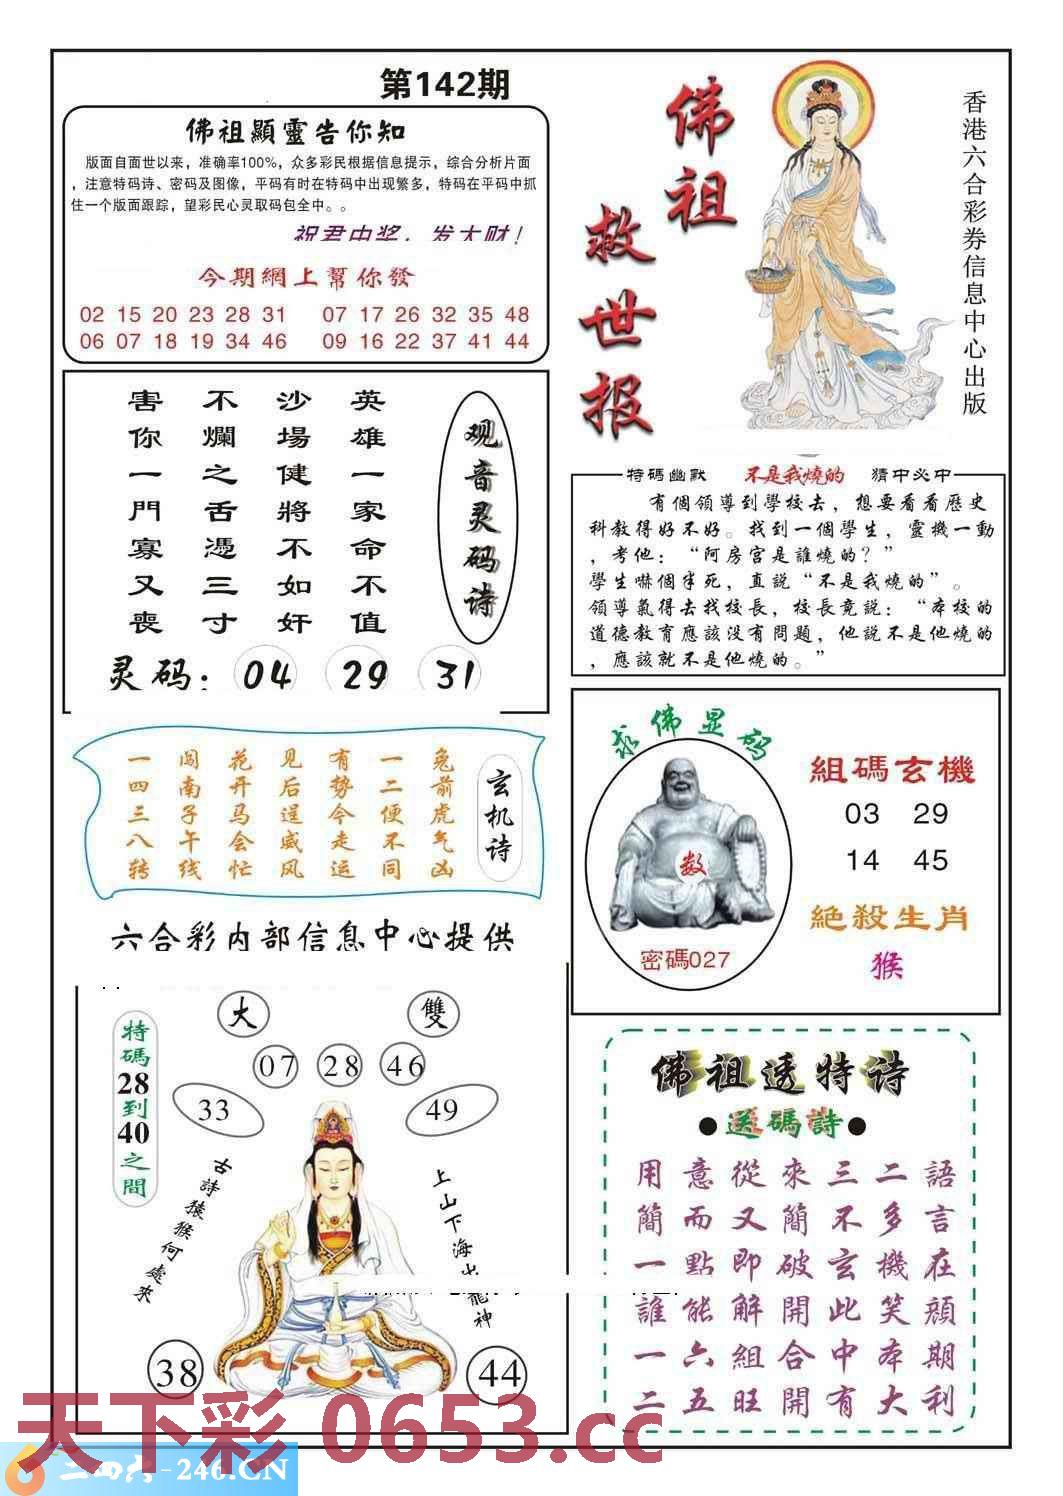 第142期
佛祖顯靈告你知
版面自面世以来，准确率100%，众多彩民根据信息提示，综合分析片面
，注意特码诗、密码及图像，平码有时在特码中出现繁多，特码在平码中抓
住一个版面跟踪，望彩民心灵取码包全中。。
祝君中奖，发大财！
今期網上幫你發
02 15 20 23 28 31 07 17 26 32 35 48
06 07 18 19 34 46 09 16 22 37 41 44
佛祖
救世报
香港六合彩券信息中心出版
观音灵码诗
英雄一家命不值
沙場健將不如奸
不爛之舌憑三寸
害你一門寡又喪
灵码：04 29 31
特碼幽默 不是我燒的 猜中必中
有個領導到學校去，想要看看歷史
科教得好不好。找到一個學生，靈機一動
，考他：“阿房宫是誰燒的？”
學生嚇個半死，直説“不是我燒的”。
領導氣得去找校長，校長竟説：“本校的
道德教育應該没有問題，他説不是他燒的
，應該就不是他燒的。”
玄机诗
兔前虎气凶
一二便不同
有势今走运
见后逞威风
花开马会忙
闯南子午线
一四三八转
六合彩内部信息中心提供
求佛显码
数
密碼027
組碼玄機
03 29
14 45
絕殺生肖
猴
大
雙
07 28 46
33
49
特碼28到40之間
古詩猿猴何處來
上山下海出龍神
38
44
佛祖透特诗
●送碼詩●
用意從來三二語
簡而又簡不多言
一點即破玄機在
誰能解開此笑顔
一六組合中本期
二五旺開有大利
天下彩 0653.cc
二四六-246.CN